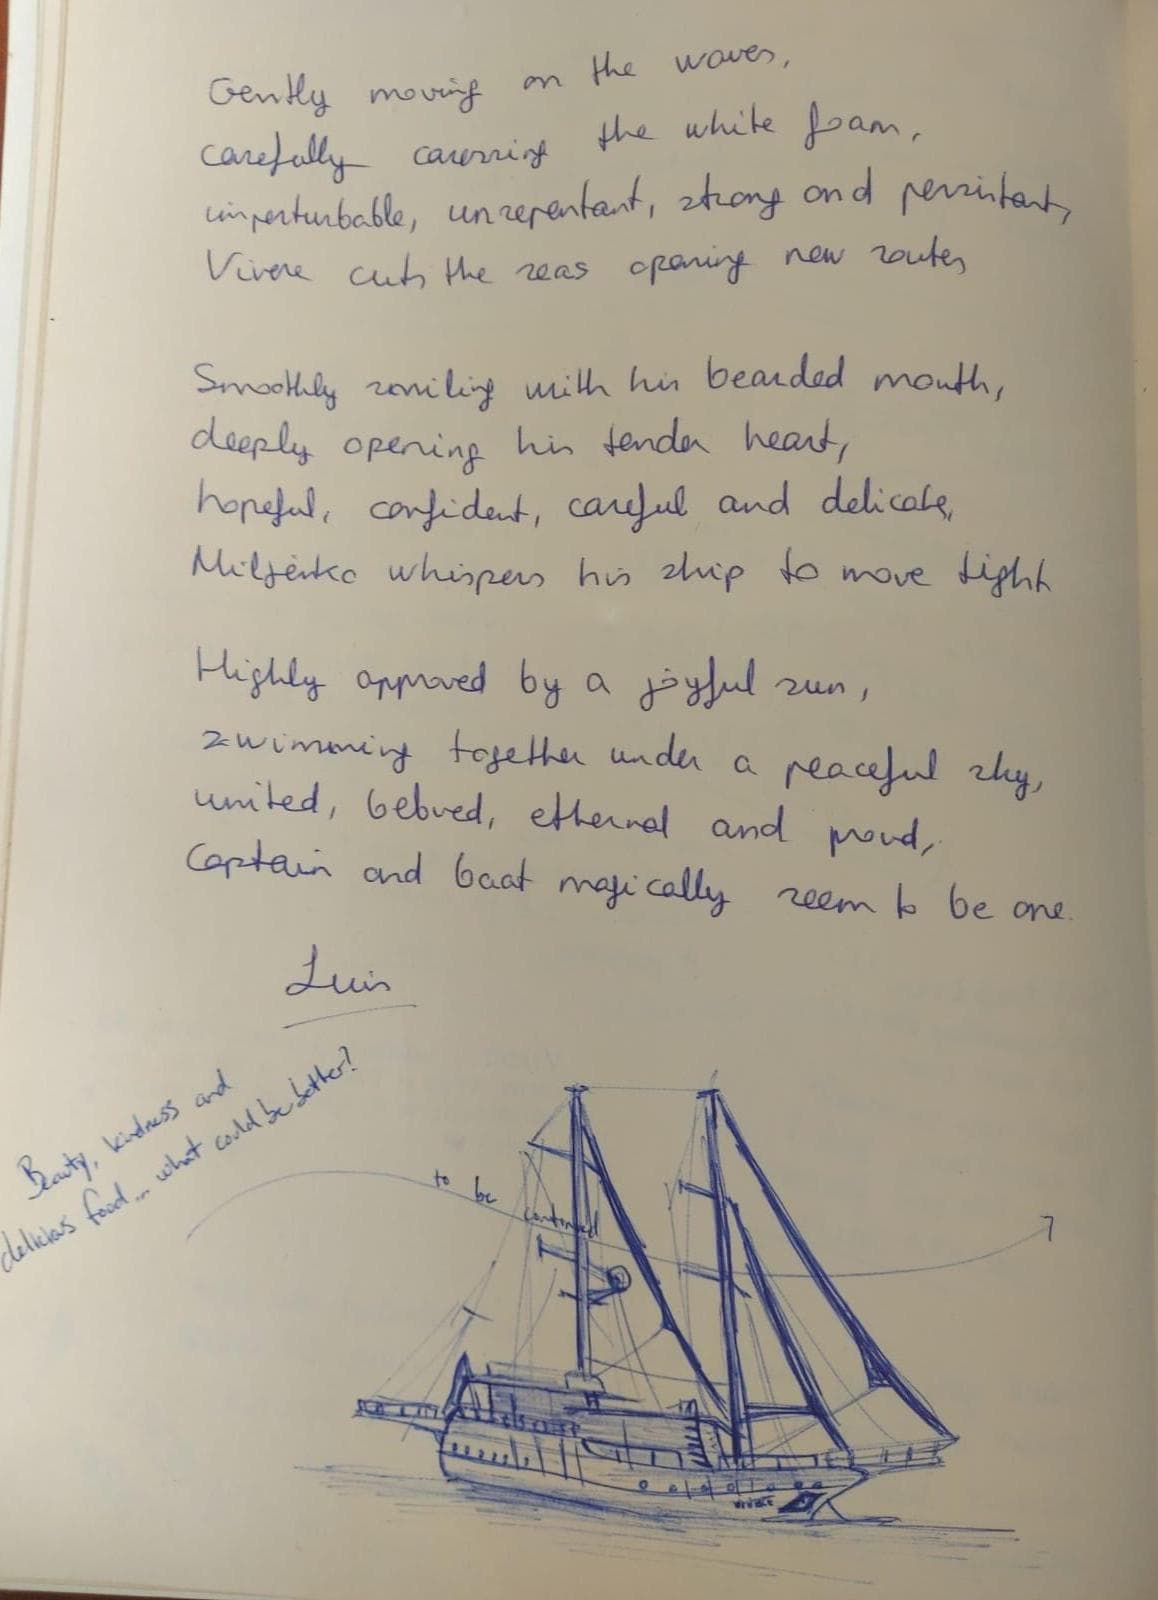 Gently moving on the waves,
carefully caressing the white foam,
imperturbable, unrepentant, strong and persistant,
Vivere cuts the seas opening new routes
Smoothly smiling with his bearded mouth,
deeply opening his tender heart,
hopeful, confident, careful and delicate,
Miljenko whispers his ship to move tight
Highly approved by a joyful sun,
swimming together under a peaceful sky,
united, beloved, ethernal and proud,
Captain and boat magically seem to be one.
Luis
Beauty, kindness and
delicious food... what could be better?
to be continued
VIVERE